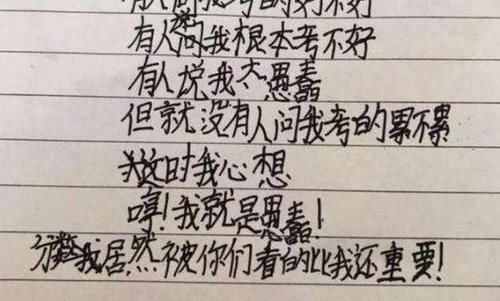 有人问我考的好不好
有人问我根本考不好
有人说我太愚蠢
但就没有人问我考的累不累
这时我心想
哼！我就是愚蠢！
分数我居然被你们看的比我还重要！